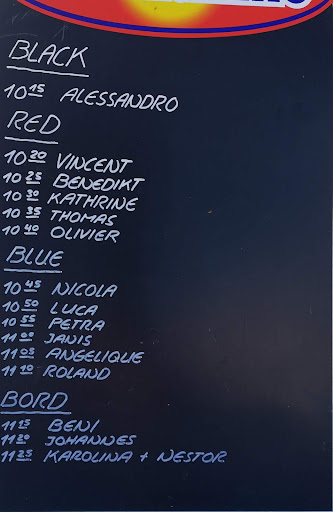 BLACK
10 15 ALESSANDRO
RED
10 20 VINCENT
10 25 BENEDIKT
10 30 KATHRINE
10 35 THOMAS
10 40 OLIVIER
BLUE
10 45 NICOLA
10 50 LUCA
10 55 PETRA
11 00 JANIS
11 05 ANGELIQUE
11 10 ROLAND
BORD
11 15 BENI
11 20 JOHANNES
11 25 KAROLINA + NESTOR